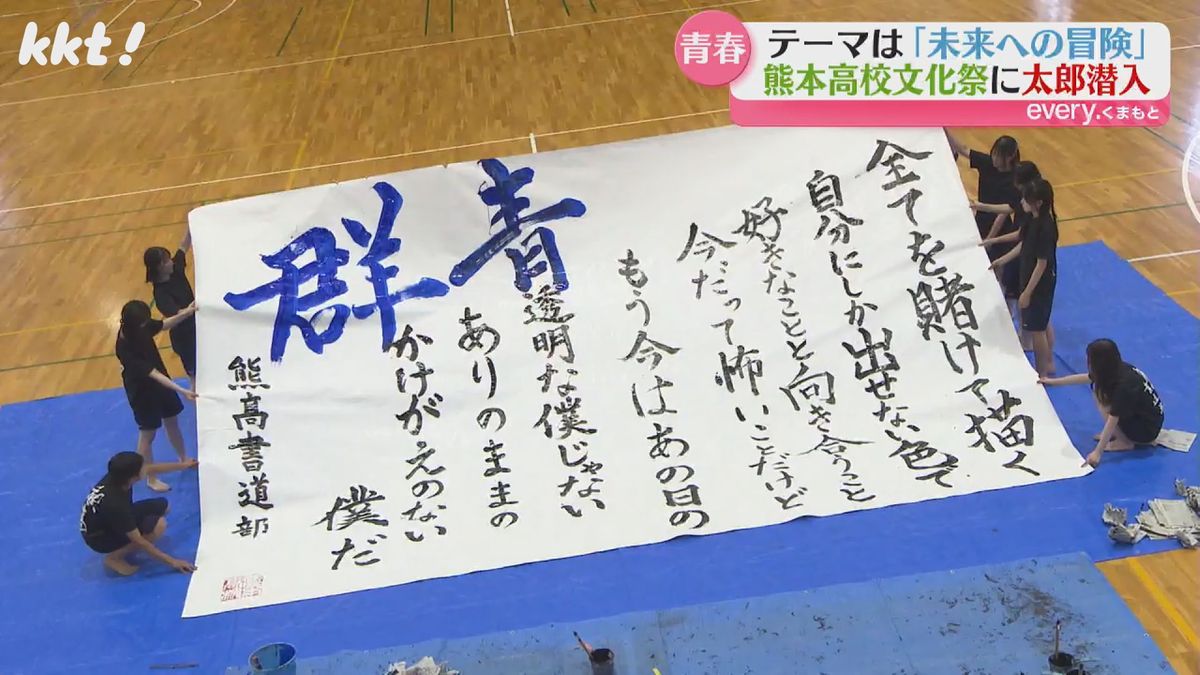 kkt!
青春
テーマは「未来への冒険」
熊本高校文化祭に太郎潜入
every.くまもと
全てを賭けて描く
自分にしか出せない色で
好きなことと向き合うこと
今だって怖いことだけど
もう今はあの日の
青群
透明な僕じゃない
ありのままの
かけがえのない
僕だ
熊高書道部